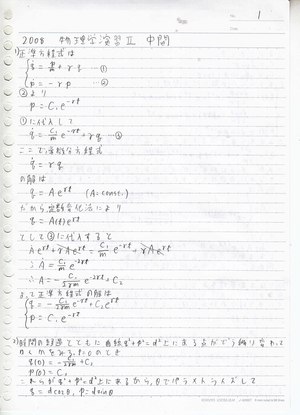 1
2008 物理学演習II 中間
1)正準方程式は
q̇ = p/m + γq ①
ṗ = -γp ②
②より
p = C₁e^{-γt}
①に代入して
q̇ = C₁/m e^{-γt} + γq ③
ここで斉次な方程式
q̇ = γq
の解は
q = Ae^{γt} (A: const.)
だから定数変化法により
q = A(t)e^{γt}
として③に代入すると
Ȧe^{γt} + γAe^{γt} = C₁/m e^{-γt} + γAe^{γt}
∴Ȧ = C₁/m e^{-2γt}
∴A = -C₁/2γm e^{-2γt} + C₂
よって正準方程式の解は
q = -C₁/2γm e^{-γt} + C₂e^{γt}
p = C₁e^{-γt}
2)時間の経過とともに曲線q²+p²=d²上にある点がどう
をみる。t=0のとき
q(0) = -C₁/2γm + C₂
p(0) = C₁
これらがq²+p²=d²上にあるから、θでパラメトライズして
q = d cosθ, p = d sinθ